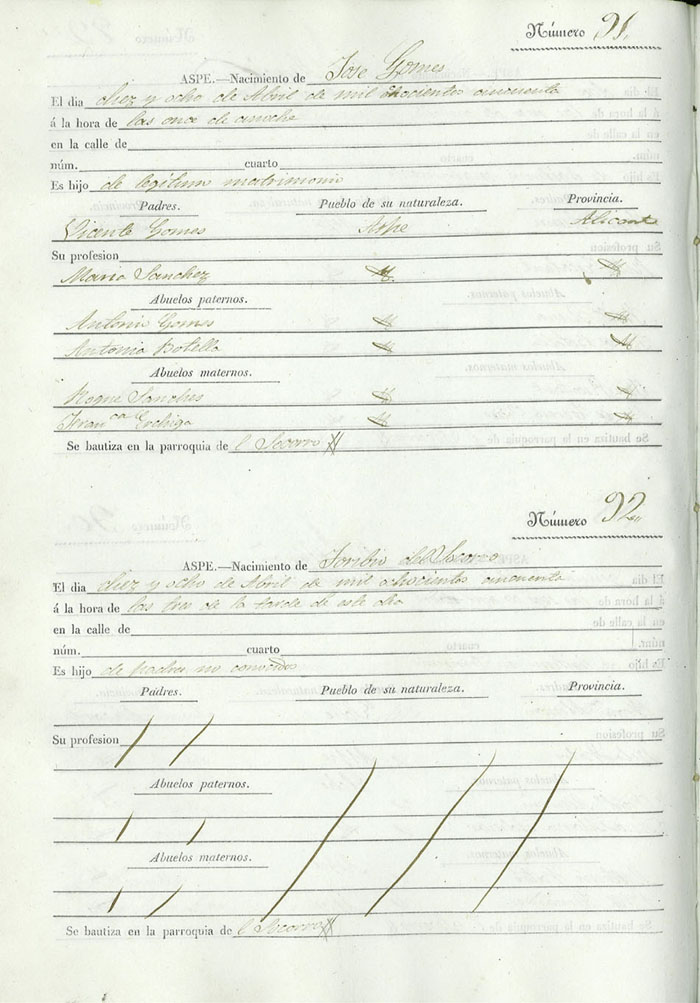 Número 91.
ASPE.—Nacimiento de Jose Gomes
El dia diez y ocho de Abril de mil ochocientos cincuenta
á la hora de las once de anoche
en la calle de
núm. cuarto
Es hijo de legitimo matrimonio
Padres. Pueblo de su naturaleza. Provincia.
Vicente Gomes Aspe Alicante
Su profesion
Maria Sanchez
Abuelos paternos.
Antonio Gomes
Antonia Botella
Abuelos maternos.
Roque Sanches
Franca
Se bautiza en la parroquia de l Socorro
Número 92.
ASPE.—Nacimiento de Toribio del Socorro
El dia diez y ocho de Abril de mil ochocientos cincuenta
á la hora de las tres de la tarde de este dia
en la calle de
núm. cuarto
Es hijo de padres no conocidos
Padres. Pueblo de su naturaleza. Provincia.
Su profesion
Abuelos paternos.
Abuelos maternos.
Se bautiza en la parroquia de l Socorro